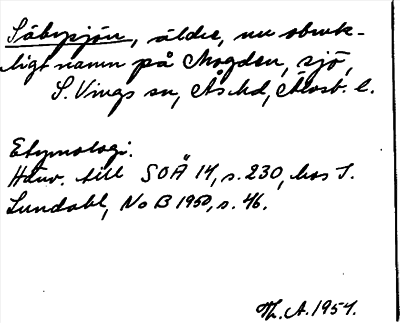 Säbysjön, äldre, nu obruk-
ligt namn på Mogden, sjö,
S. Vings sn, Ås hd, Älvsb. l.
Etymologi.
Hänv. till SOÄ 14, s. 230, hos I.
Lundahl, No B 1950, s. 46.
Th. A. 1954.